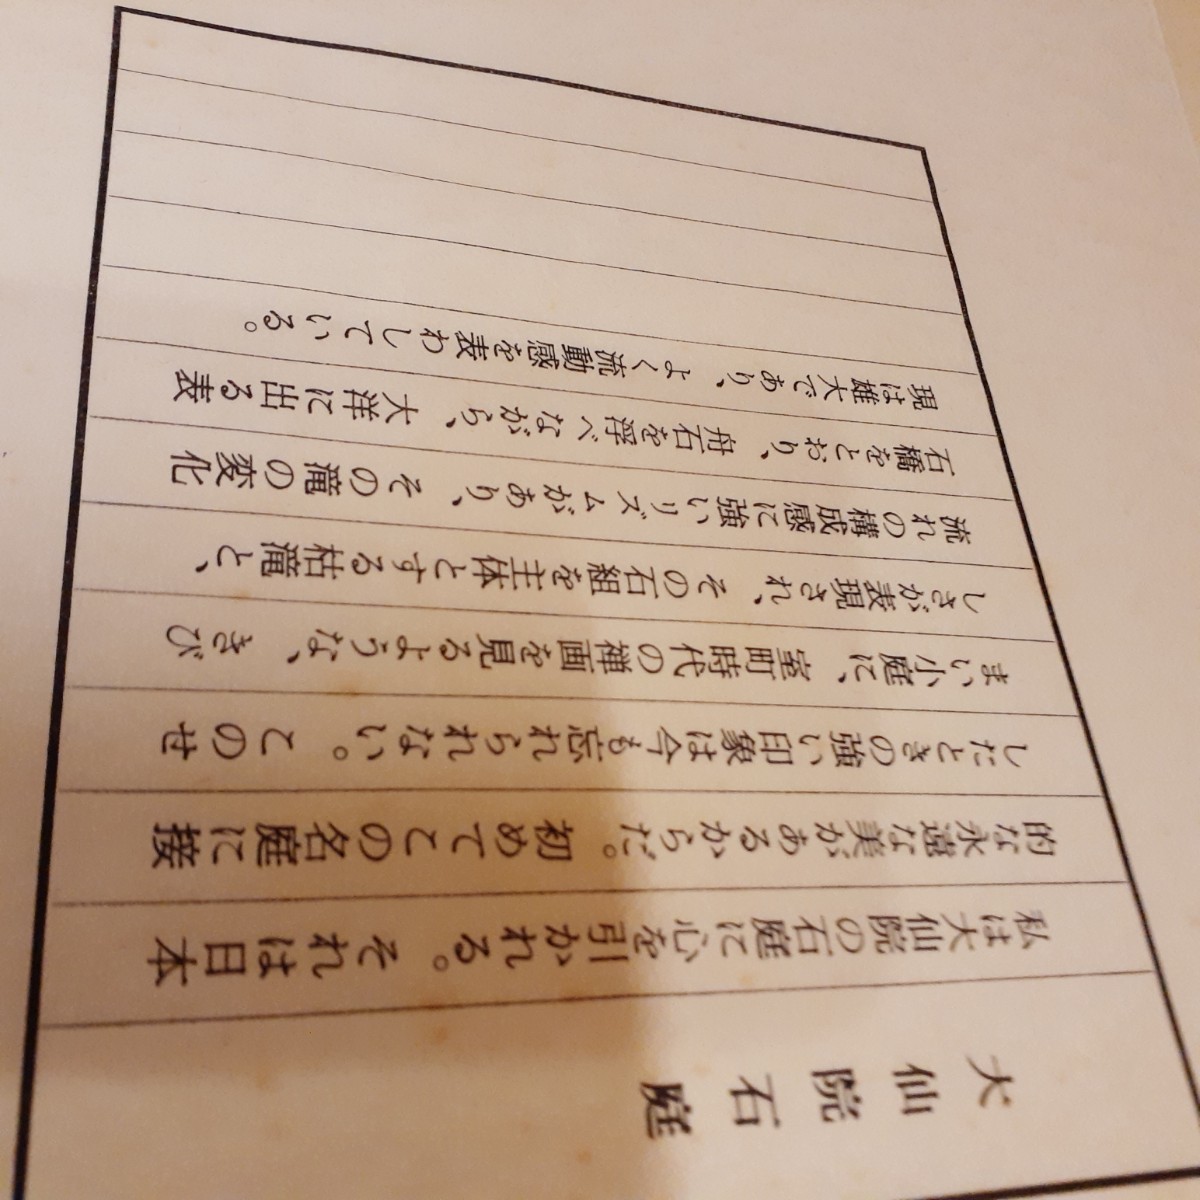 大仙院石庭
私は大仙院の石庭に心を引かれる。それは日本
的な永遠な美があるからだ。初めてこの名庭に接
したときの強い印象は今も忘れられない。このせ
まい小庭に、室町時代の禅画を見るような、きび
しさが表現され、その石組を主体とする枯滝と、
流れの構成感に強いリズムがあり、その滝の変化
石橋をとおり、舟石を浮べながら、大洋に出る表
現は雄大であり、よく流動感を表わしている。